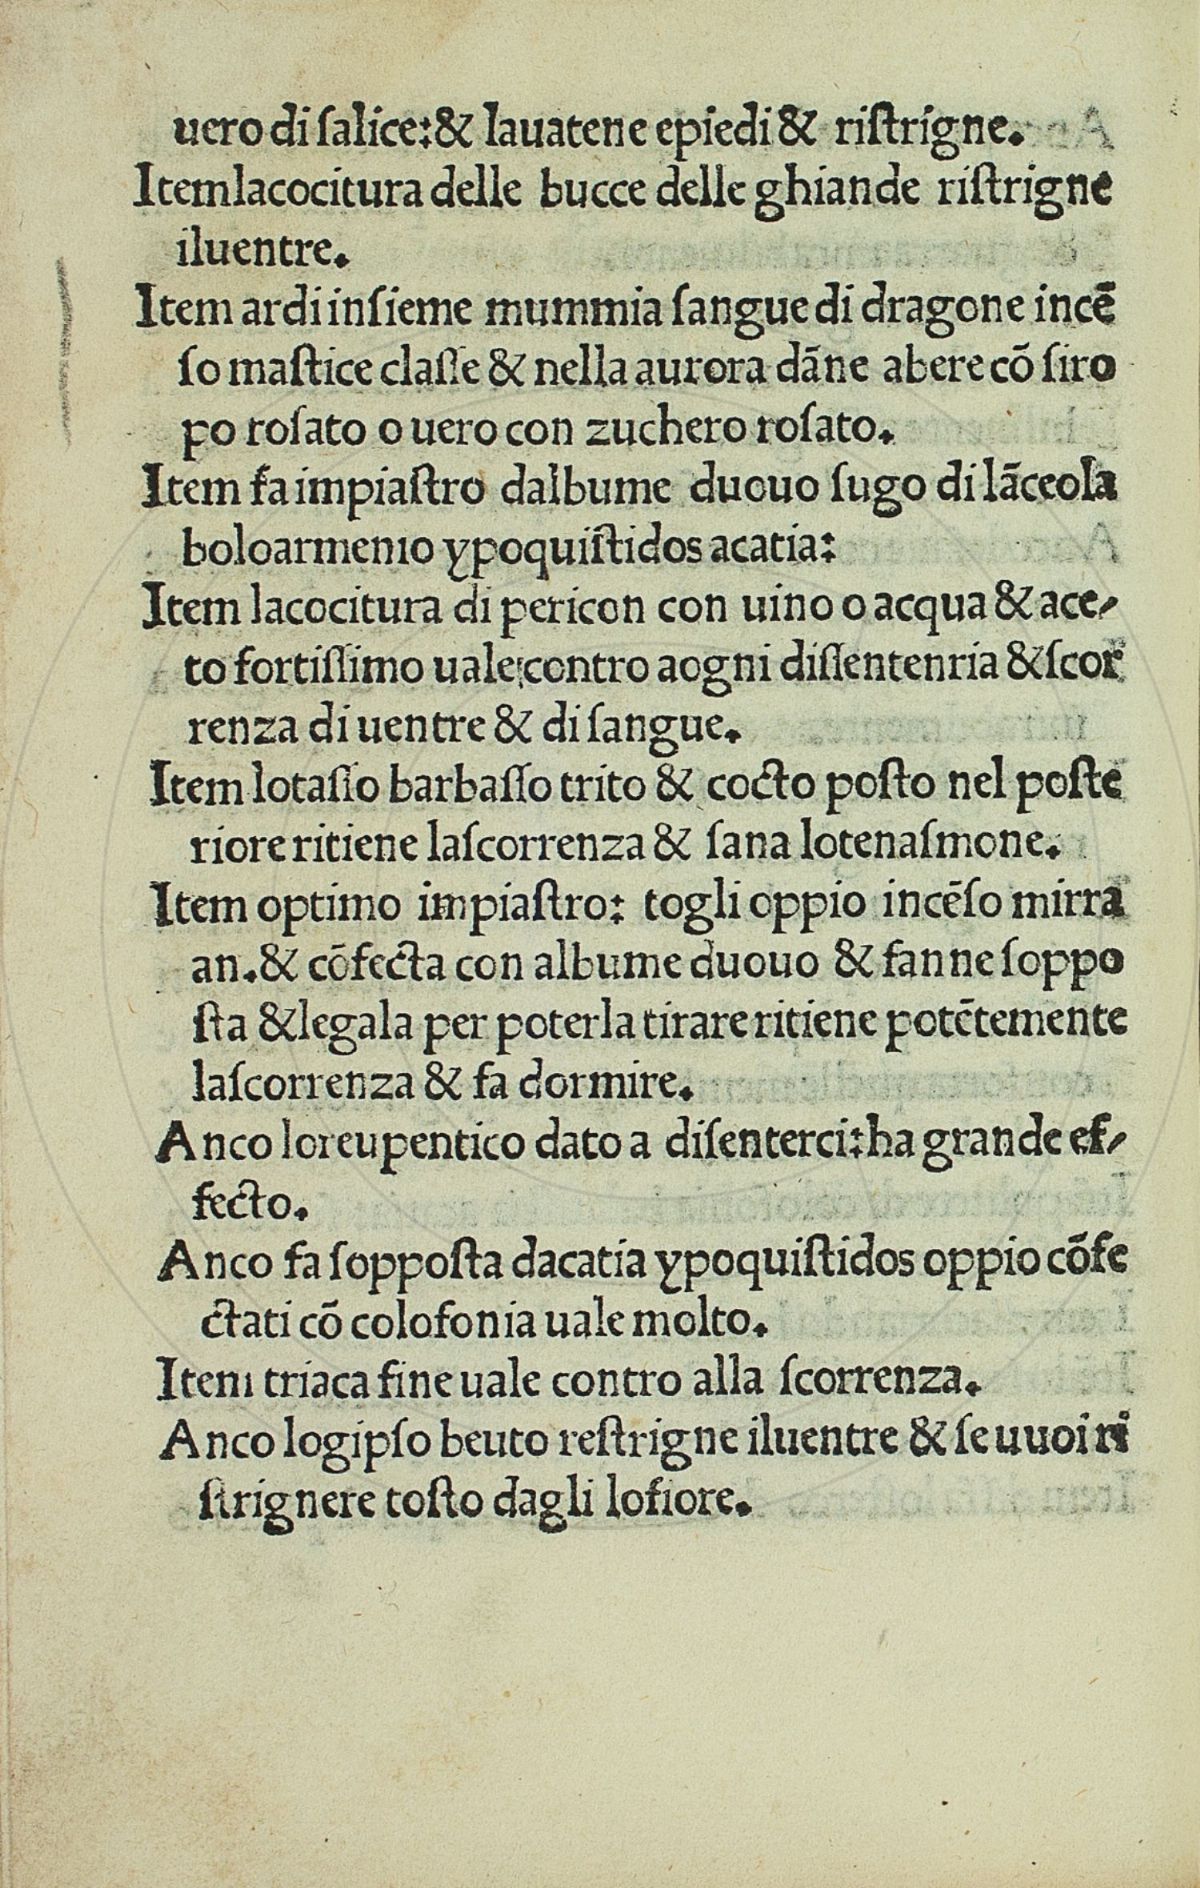 uero di ſalice:& lauatene epiedi & riſtrigne.
Item lacocitura delle bucce delle ghiande riſtrigne
iluentre.
Item ardi inſieme mummia ſangue di dragone incē
ſo maſtice claſſe & nella aurora dāne abere cō ſiro
po roſato o uero con zuchero roſato.
Item fa impiaſtro dalbume duouo ſugo di lāceola
boloarmenio ypoquiſtidos acatia:
Item lacocitura di pericon con uino o acqua & ace⸗
to fortiſſimo uale contro aogni diſſentenria & ſcor
renza di uentre & di ſangue.
Item lotaſſo barbaſſo trito & cocto poſto nel poſte
riore ritiene laſcorrenza & ſana lotenaſmone.
Item optimo impiaſtro: togli oppio incēſo mirra
an.& cōfecta con albume duouo & fanne ſoppo
ſta & legala per poterla tirare ritiene potētemente
laſcorrenza & fa dormire.
Anco loreupentico dato a diſenterci:ha grande ef⸗
fecto.
Anco fa ſoppoſta dacatia ypoquiſtidos oppio cōfe
ctati cō colofonia uale molto.
Item triaca fine uale contro alla ſcorrenza.
Anco logipſo beuto reſtrigne iluentre & ſe uuoi ri
ſtrignere toſto dagli lofiore.